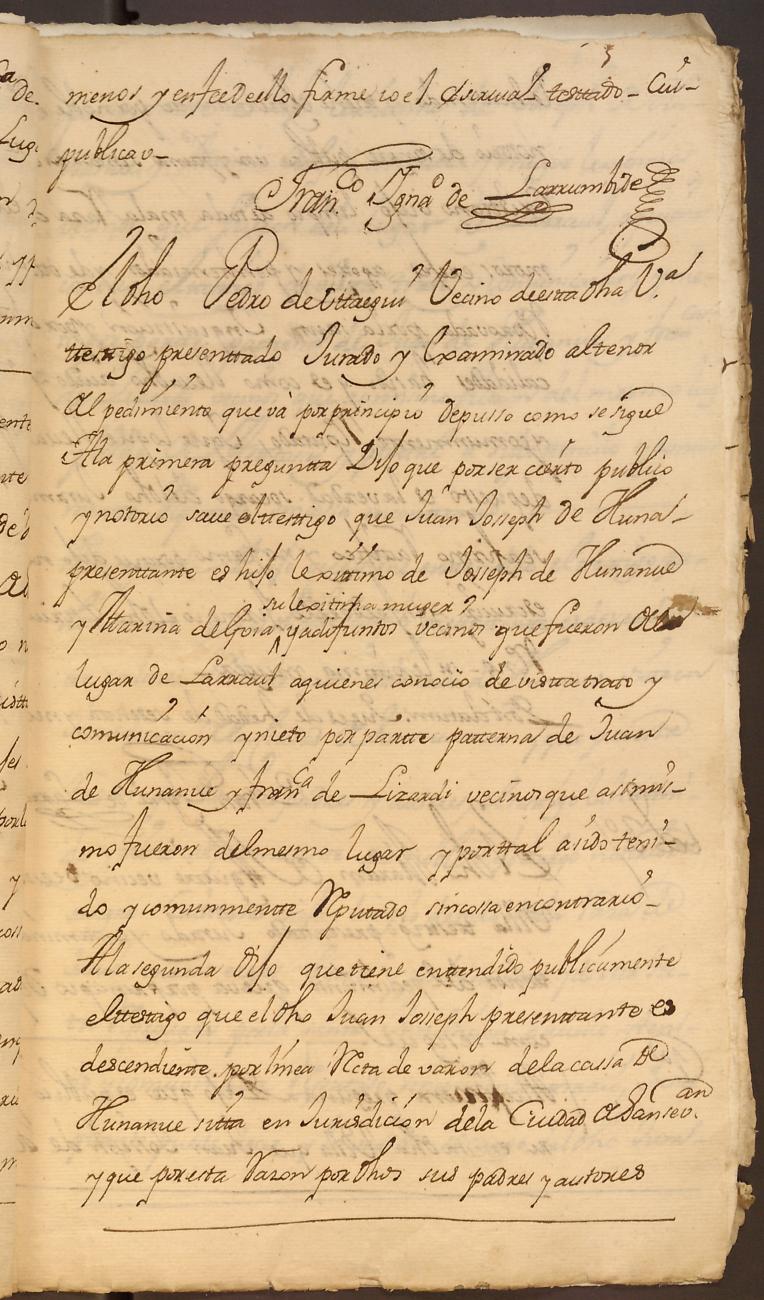 menos y enfee deello firme io el escrivano testtado - Cui -
publicao -
Fran.co Igna.o de Larrumbide
El dho Pedro de Vttaegui Vecino deesta dha V.a
testtigo presenttado Jurado y Examinado altenor
Al pedimiento que và porprincipio depusso como sesigue
Ala primera pregunta Dijo que porser cierto publico
ynotorio save elttesttigo que Juan Josseph de Huna-
presenttante es hijo lexitimo de Josseph de Hunanue
su lexitima muger
y Marina delfoia yadifuntos vecinos que fueron del
lugar de Larraul aquienes conocio de visttatrato y
comunicacion ynieto por partte patterna de Juan
de Hunanue y fran.ca de Lizardi vecinosque asimis-
mo fueron delmesmo lugar y porttal asido teni-
do y comunmentte Reputado sincossaencontrario -
Ala segunda Dijo que tiene enttendido publicamente
elttesttigo que el dho Juan Josseph presenttante es
descendiente por linea Recta de varon dela cassa de
Hunanue sitta en Jurisdicion dela Ciudad de Sansev.an
y que poresta Razon por dhos sus padres y autores